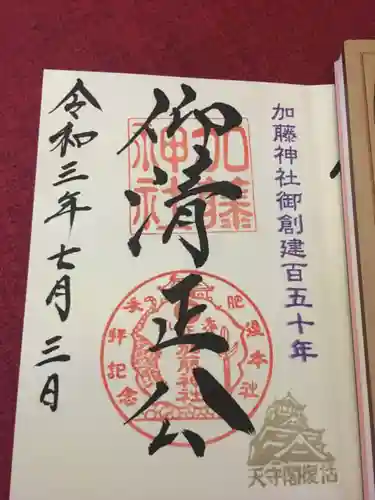 加藤神社御創建百五十年
仰清正公
加藤神社
肥後本社
参拝記念
加藤神社
天守閣復旧
令和三年七月三日